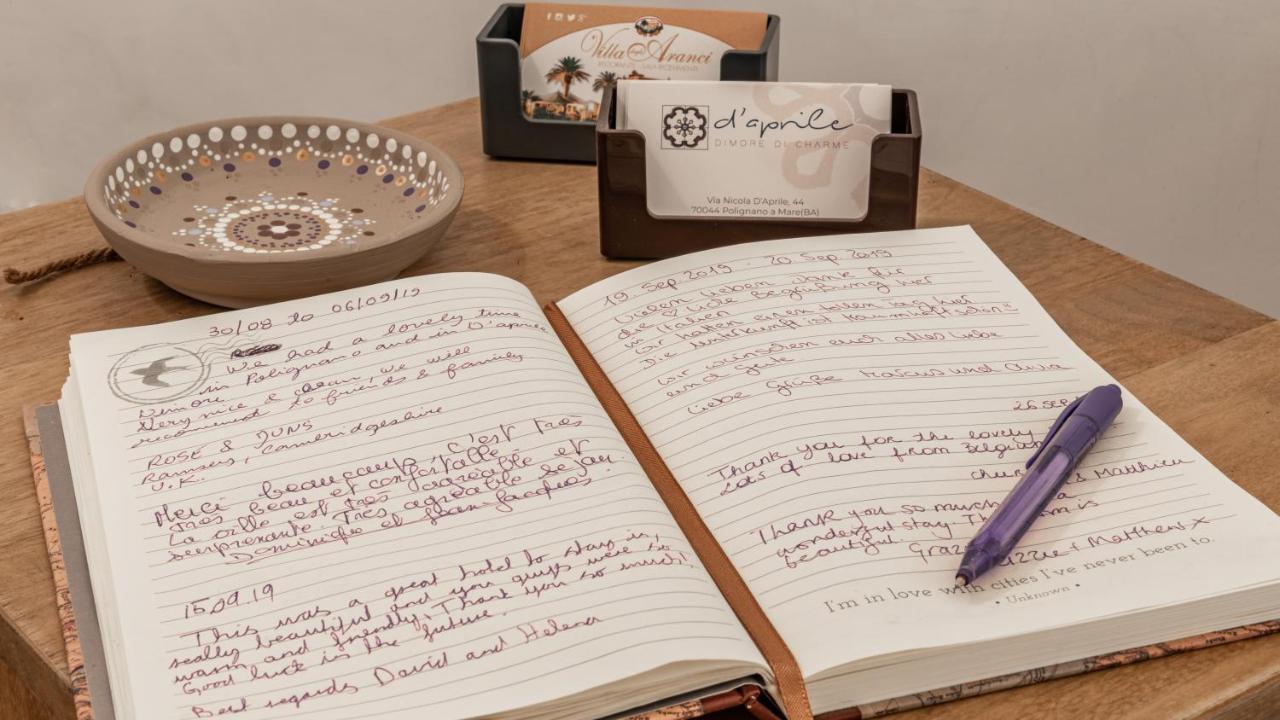 Villa degli Aranci
RISTORANTE - SALA RICEVIMENTI
d'aprile
DIMORE DI CHARME
Via Nicola D'Aprile, 44
70044 Polignano a Mare(BA)
30/08 to 06/09/19
We had a lovely time
in Polignano and in D'aprile
Dimore.
Very nice & clean we will
recommend to friends & family
ROSE & JUNS
Ramsey, Cambridgeshire
U.K.
Merci beaucoup, c'est très
très beau et confortable.
La ville est très agréable et
surprenante. Très agréable séjour
Dominique et Jean Jacques
15.09.19
This was a great hotel to stay in,
really beautiful and you guys were so
warm and friendly. Thank you so much!
Good luck in the future.
Best regards David and Helena
19. Sep 2019 - 20 Sep 2019
Vielen lieben Dank für
die Begrüßung hier
in Italien
Wir hatten einen tollen Tag hier
Die Unterkunft ist
Wir wünschen euch alles Liebe
und Gute
Liebe Grüße Marcus und
26 sep
Thank you for the lovely
Lots of love from Belgium
& Matthieu
Thank you so much
wonderful stay. The is
beautiful. + Matthew x
I'm in love with cities I've never been to.
• Unknown •